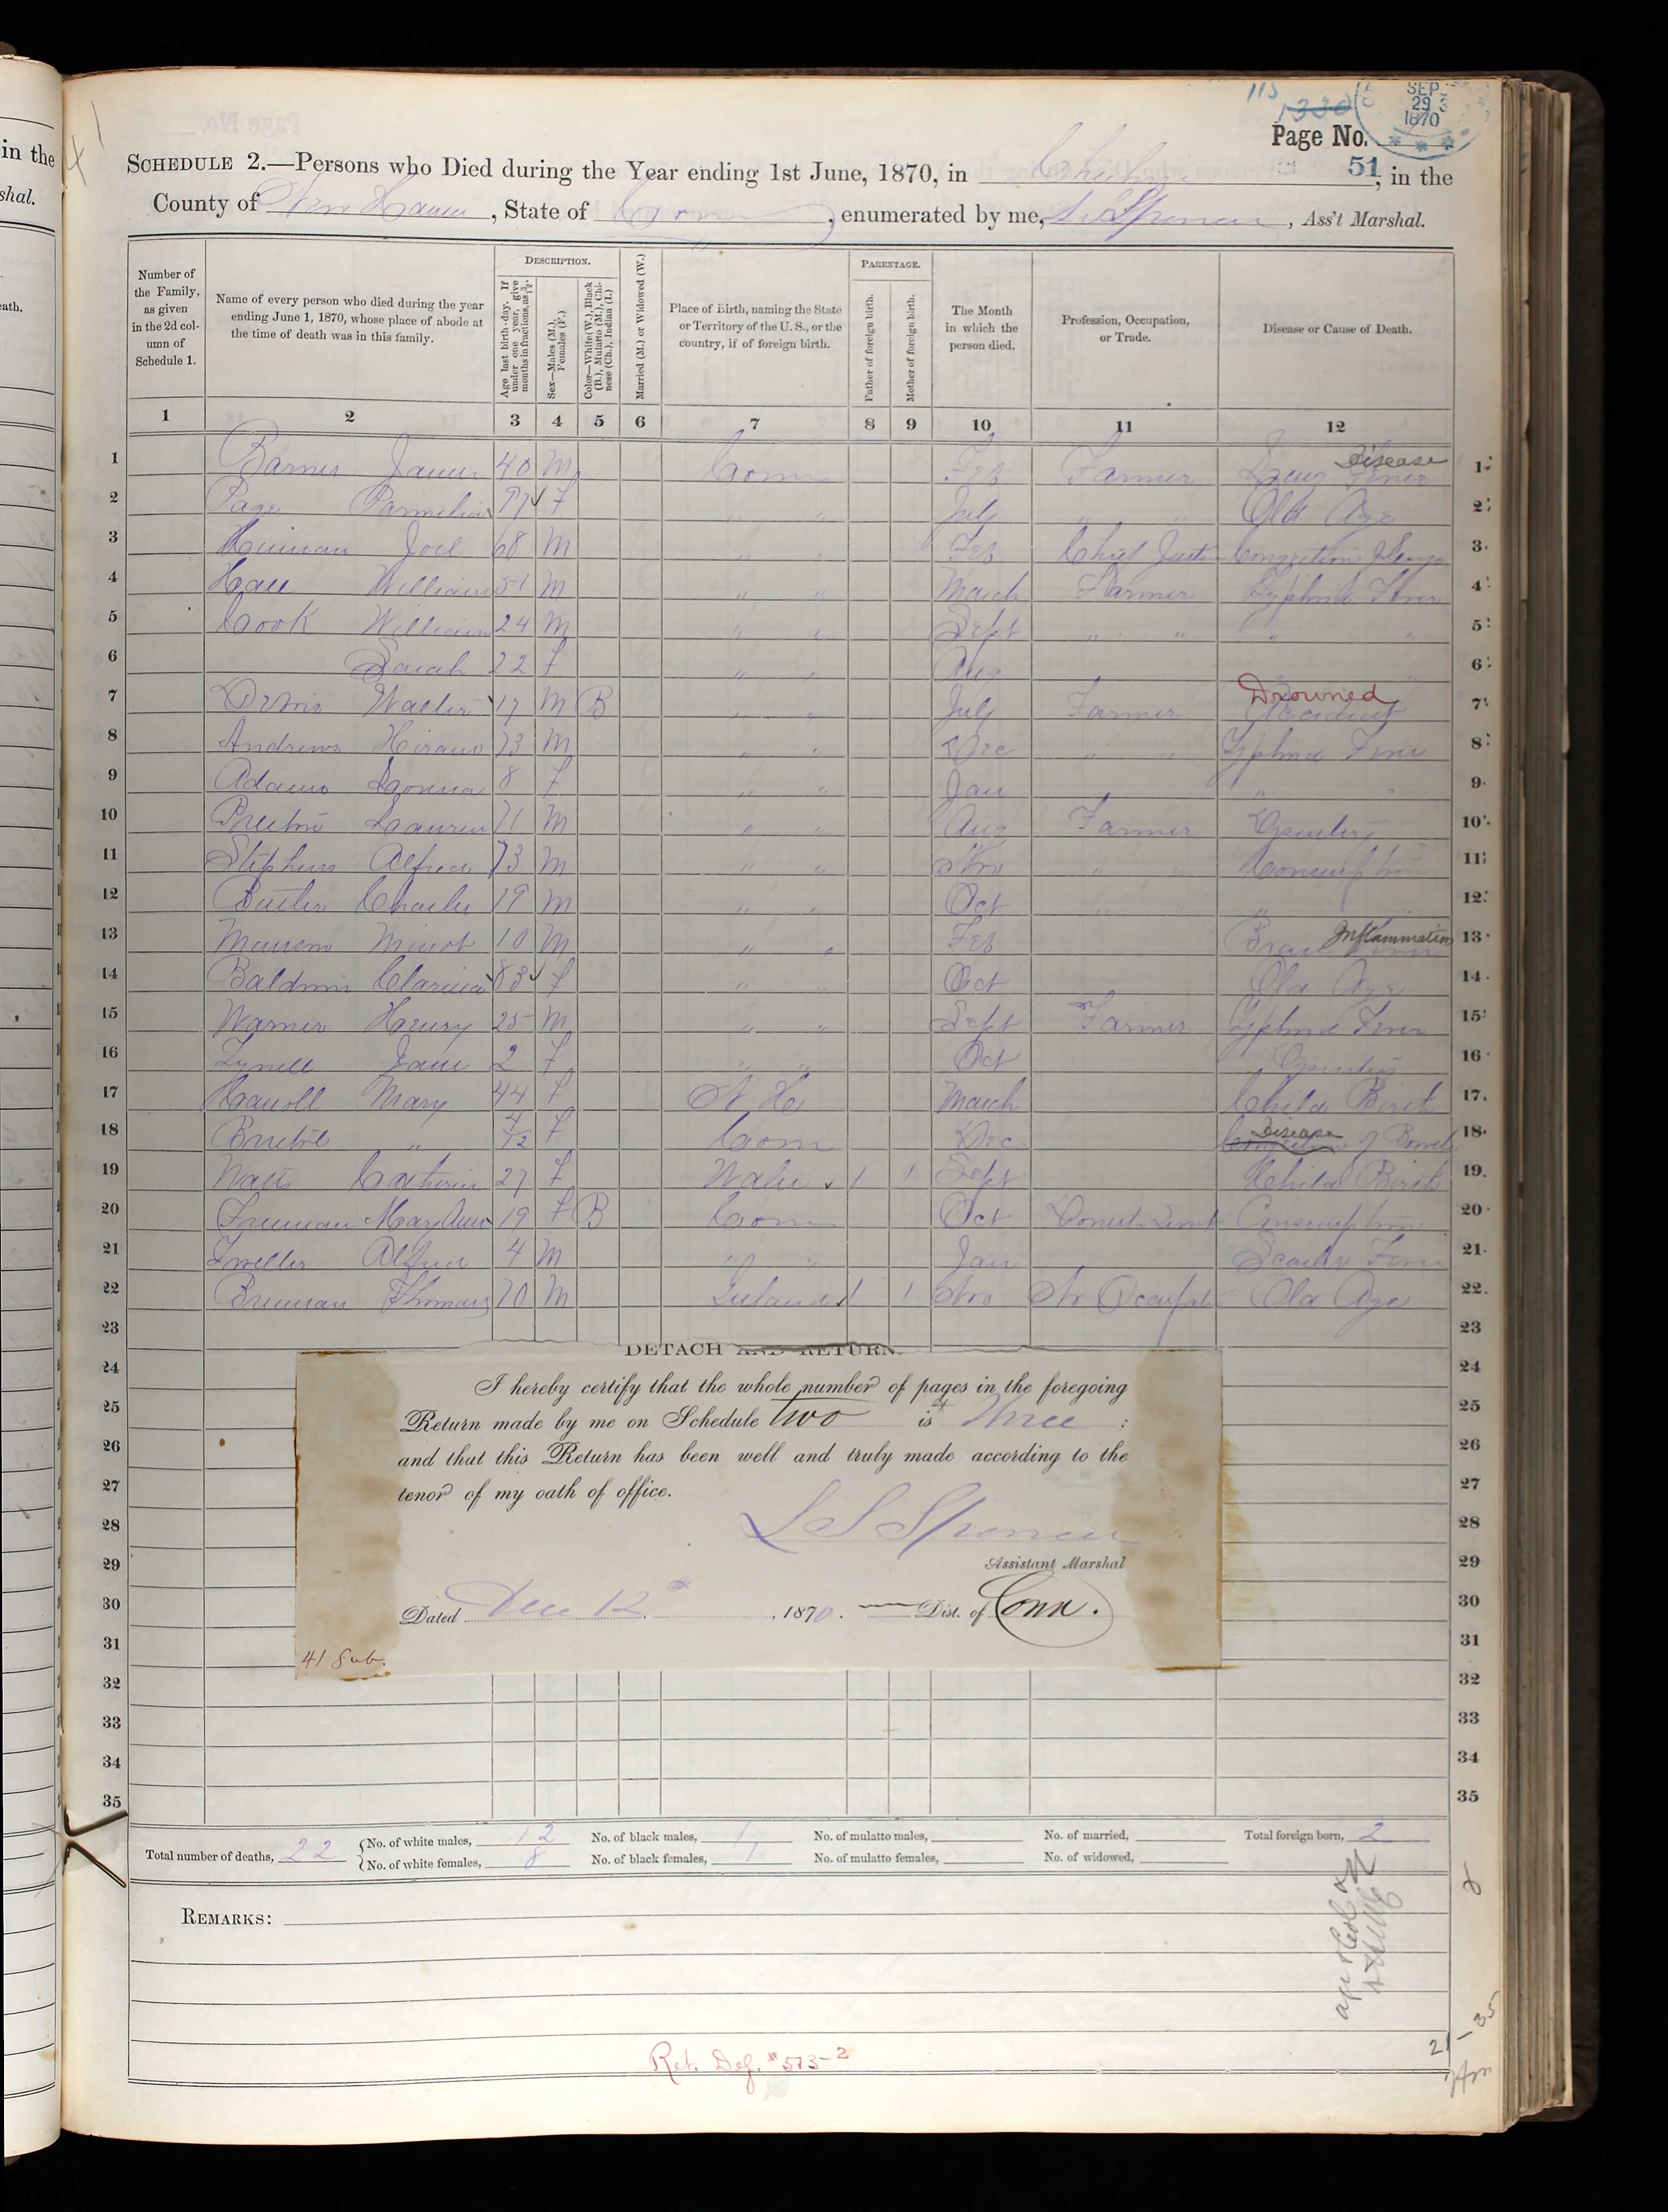 in the
shal.
eath.
115
1330
SEP
29
1870
Page No.
SCHEDULE 2.—Persons who Died during the Year ending 1st June, 1870, in Cheshire 51, in the
County of New Haven, State of Conn, enumerated by me, L S Spencer, Ass't Marshal.
Number of the Family, as given in the 2d column of Schedule 1.
Name of every person who died during the year ending June 1, 1870, whose place of abode at the time of death was in this family.
DESCRIPTION.
Age last birth-day. If under one year, give months in fractions, as 3/12.
Sex—Males (M.), Females (F.)
Color—White (W.), Black (B.), Mulatto (M.), Chinese (Ch.), Indian (I.)
Married (M.) or Widowed (W.)
Place of Birth, naming the State or Territory of the U. S., or the country, if of foreign birth.
PARENTAGE.
Father of foreign birth.
Mother of foreign birth.
The Month in which the person died.
Profession, Occupation, or Trade.
Disease or Cause of Death.
1 2 3 4 5 6 7 8 9 10 11 12
1 Barnes James 40 M Conn Feb Farmer Lung Fever Disease 1
2 Page Parmelia 77 F " " July " " Old Age 2
3 Hinman Joel 68 M " " Feb Chief Justice Congestion of Lungs 3
4 Hall William 51 M " " March Farmer Typhoid Fever 4
5 Cook William 24 M " " Sept " " " " 5
6 Sarah 22 F " " Aug 6
7 Walter 17 M B " " July Farmer Accident Drowned 7
8 Andrews Hiram 73 M " " Dec " " Typhoid Fever 8
9 Adams 8 F " " Jan " " 9
10 71 M " " Aug Farmer Dysentery 10
11 Stephens Alfred 73 M " " Nov " " Consumption 11
12 Butler Charles 19 M " " Oct " " " " 12
13 Munson Minot 10 M " " Feb Brain Fever Inflammation 13
14 Baldwin Clarissa 83 F " " Oct Old Age 14
15 Warner Henry 25 M " " Sept Farmer Typhoid Fever 15
16 Jane 2 F " " Oct Dysentery 16
17 Mary 44 F N H March Child Birth 17
18 Bristol " 7/12 F Conn Dec Disease of Bowels 18
19 Catherine 27 F Wales 1 1 Sept Child Birth 19
20 Freeman Mary Ann 19 F B Conn Oct Domest Servt Consumption 20
21 Alfred 4 M " " Jan Scarlet Fever 21
22 Brennan Thomas 70 M Ireland 1 1 Nov No Occupat Old Age 22
23 23
24 24
25 25
26 26
27 27
28 28
29 29
30 30
31 31
32 32
33 33
34 34
35 35
DETACH AND RETURN.
I hereby certify that the whole number of pages in the foregoing
Return made by me on Schedule two is Three ;
and that this Return has been well and truly made according to the
tenor of my oath of office.
L S Spencer
Assistant Marshal
Dated Dec 12th, 1870. Dist. of Conn.
41 Sub.
Total number of deaths, 22 No. of white males, 12 No. of black males, 1 No. of mulatto males, No. of married, Total foreign born, 2
No. of white females, 8 No. of black females, 1 No. of mulatto females, No. of widowed,
REMARKS:
21-35
Ret. Def. #573-2